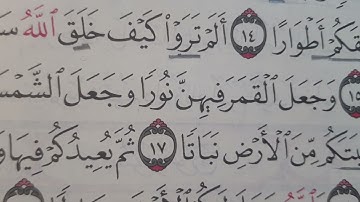 قَكُمْ أَطْوَارًا ١٤ أَلَمْ تَرَوْا۟ كَيْفَ خَلَقَ ٱللَّهُ سَ
١٥ وَجَعَلَ ٱلْقَمَرَ فِيهِنَّ نُورًا وَجَعَلَ ٱلشَّمْسَ
بَتَكُم مِّنَ ٱلْأَرْضِ نَبَاتًا ١٧ ثُمَّ يُعِيدُكُمْ فِيهَا وَ